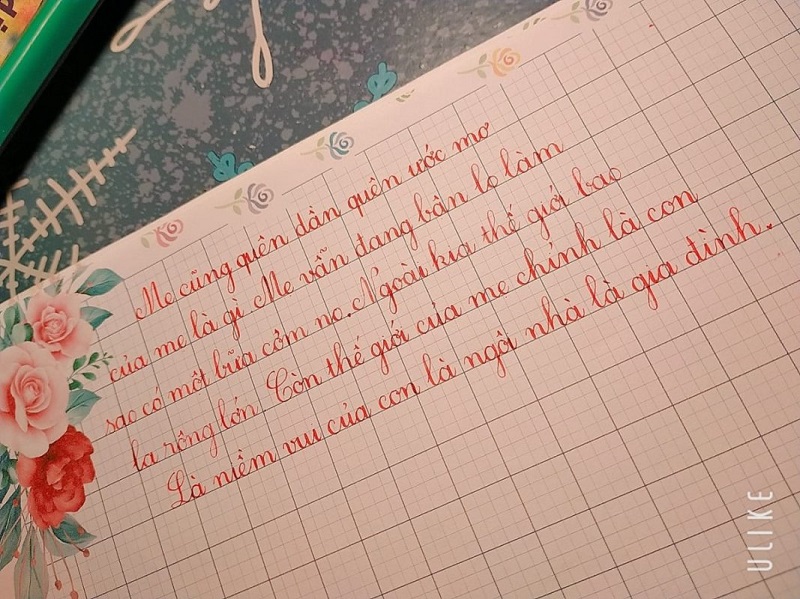 Mẹ cũng quên dần quên ước mơ
của mẹ là gì Mẹ vẫn đang bận lo làm
sao có một bữa cơm no. Ngoài kia thế giới bao
la rộng lớn Còn thế giới của mẹ chính là con
Là niềm vui của con là ngôi nhà là gia đình.
ULIKE